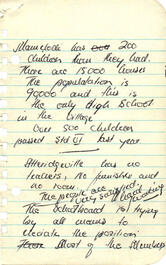 Mamelodi has 200
Children than they had.
There are 15000 houses
The population is
90000 and this is
the only High School
in the village
Over 500 children
passed Std VI last year
Atteridgeville has no
teachers, No furnishe and
no room.
The people are very
The School Board is trying
by all means to
the position
Most of the Members